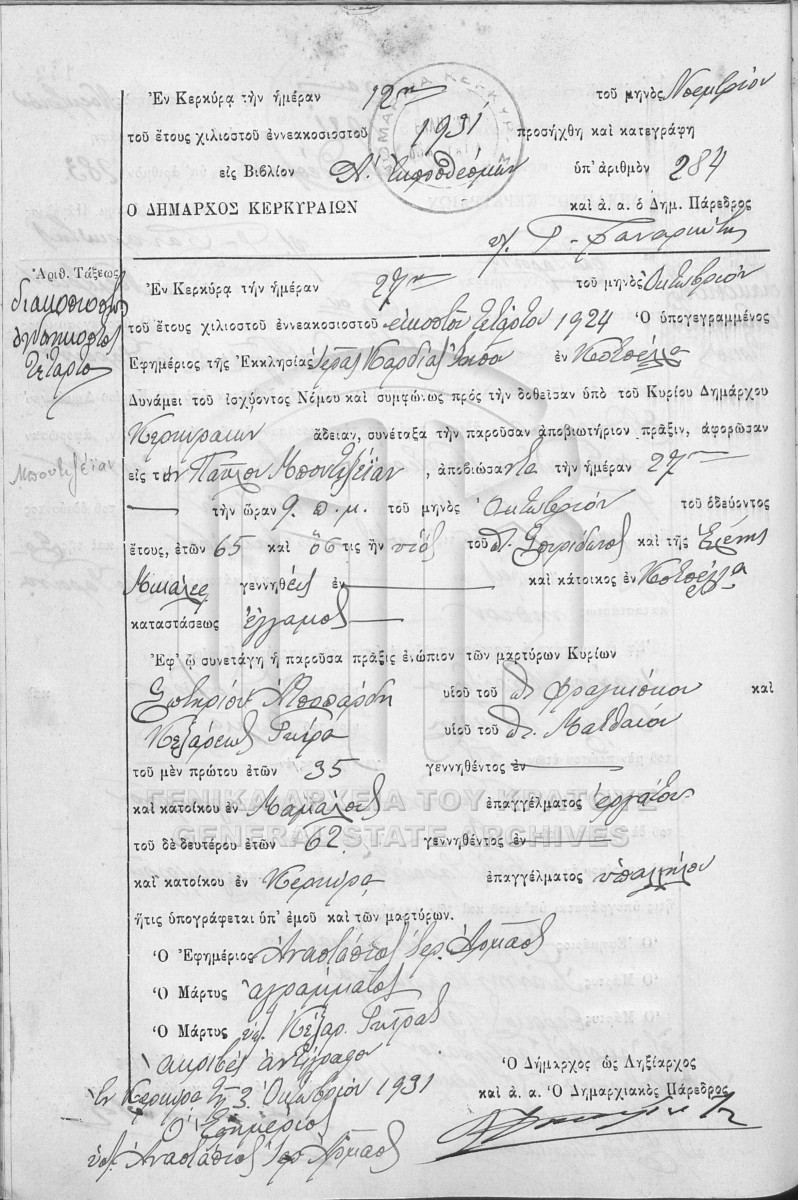 Ἐν Κερκύρᾳ τὴν ἡμέραν 12ην τοῦ μηνὸς Νοεμβρίου
τοῦ ἔτους χιλιοστοῦ ἐννεακοσιοστοῦ 1931 προσήχθη καὶ κατεγράφη
εἰς Βιβλίον Α. Ἐκπροθέσμων ὑπ' ἀριθμὸν 284
Ο ΔΗΜΑΡΧΟΣ ΚΕΡΚΥΡΑΙΩΝ καὶ ἀ. α. ὁ Δημ. Πάρεδρος
Ἀριθ. Τάξεως
διακοσιοστὸν
ὀγδοηκοστὸν
τέταρτον
Ἐν Κερκύρᾳ τὴν ἡμέραν 27ην τοῦ μηνὸς Ὀκτωβρίου
τοῦ ἔτους χιλιοστοῦ ἐννεακοσιοστοῦ εἰκοστοῦ τετάρτου 1924 Ὁ ὑπογεγραμμένος
Ἐφημέριος τῆς Ἐκκλησίας Ἱερᾶς Καρδίας Ἰησοῦ ἐν
Δυνάμει τοῦ ἰσχύοντος Νόμου καὶ συμφώνως πρὸς τὴν δοθεῖσαν ὑπὸ τοῦ Κυρίου Δημάρχου
Κερκυραίων ἄδειαν, συνέταξα τὴν παροῦσαν ἀποβιωτήριον πρᾶξιν, ἀφορῶσαν
Μπουτζεΐαν
εἰς τὸν Παῦλον Μποντζεΐαν, ἀποβιώσαντα τὴν ἡμέραν 27ην
τὴν ὥραν 9 π.μ. τοῦ μηνὸς Ὀκτωβρίου τοῦ ὁδεύοντος
ἔτους, ἐτῶν 65 καὶ ὅστις ἦν υἱὸς τοῦ π. Σπυρίδωνος καὶ τῆς Ἑλένης
γεννηθεὶς ἐν καὶ κάτοικος ἐν
καταστάσεως ἔγγαμος
Ἐφ' ᾧ συνετάγη ἡ παροῦσα πρᾶξις ἐνώπιον τῶν μαρτύρων Κυρίων
Σωτηρίου υἱοῦ τοῦ π. Φραγκίσκου καὶ
υἱοῦ τοῦ π. Ματθαίου
τοῦ μὲν πρώτου ἐτῶν 35 γεννηθέντος ἐν
καὶ κατοίκου ἐν ἐπαγγέλματος ἐργάτου
ΓΕΝΙΚΑ ΑΡΧΕΙΑ ΤΟΥ ΚΡΑΤΟΥΣ
GENERAL STATE ARCHIVES
τοῦ δὲ δευτέρου ἐτῶν 62 γεννηθέντος ἐν
καὶ κατοίκου ἐν Κερκύρᾳ ἐπαγγέλματος ὑπαλλήλου
ἥτις ὑπογράφεται ὑπ' ἐμοῦ καὶ τῶν μαρτύρων.
Ὁ Ἐφημέριος Ἀναστάσιος Ἱερ.
Ὁ Μάρτυς ἀγράμματος
Ὁ Μάρτυς
ἀκριβὲς ἀντίγραφον
Ἐν Κερκύρᾳ τῇ 3 Ὀκτωβρίου 1931
Ὁ Ἐφημέριος
Ἀναστάσιος
Ὁ Δήμαρχος ὡς Ληξίαρχος
καὶ ἀ. α. Ὁ Δημαρχιακὸς Πάρεδρος